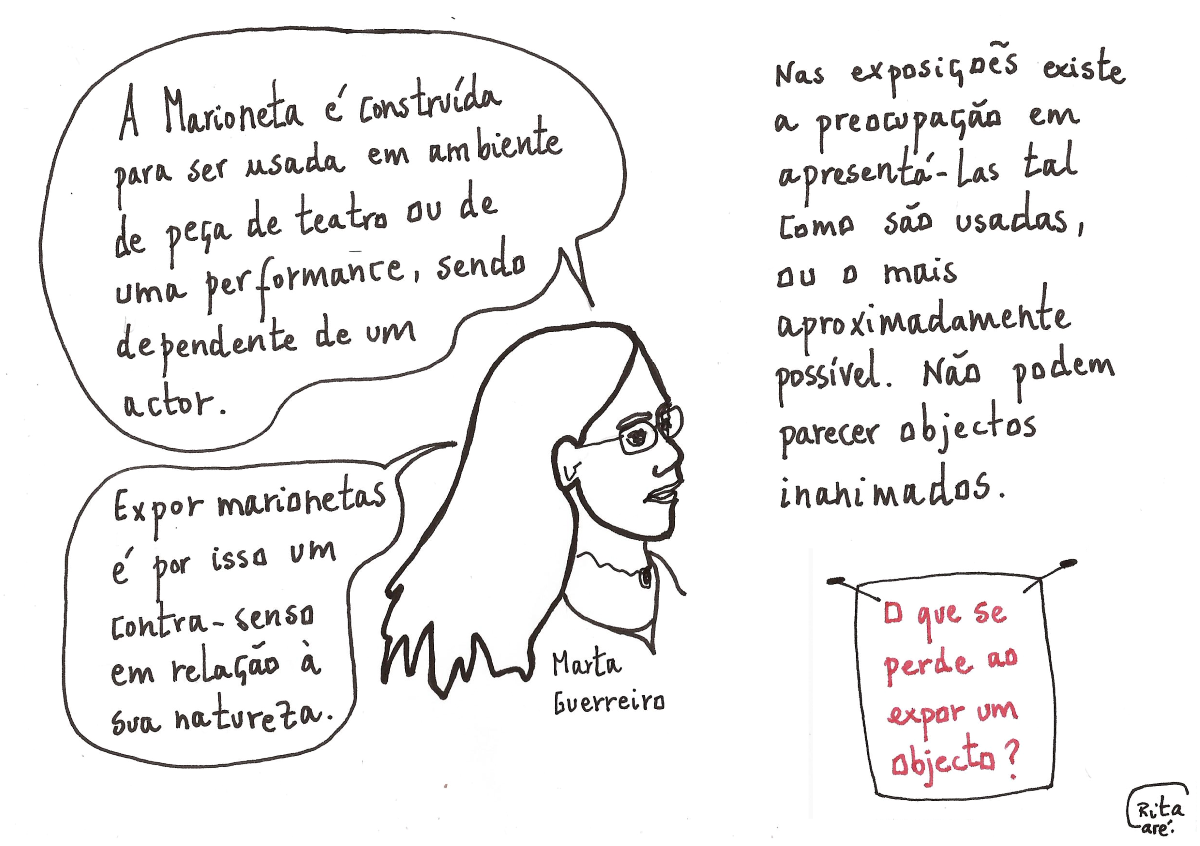 A Marioneta é construída
para ser usada em ambiente
de peça de teatro ou de
uma performance, sendo
dependente de um
actor.
Expor marionetas
é por isso um
contra-senso
em relação à
sua natureza.
Marta
Guerreiro
Nas exposições existe
a preocupação em
apresentá-las tal
como são usadas,
ou o mais
aproximadamente
possível. Não podem
parecer objectos
inanimados.
O que se
perde ao
expor um
objecto?
Rita
aré.